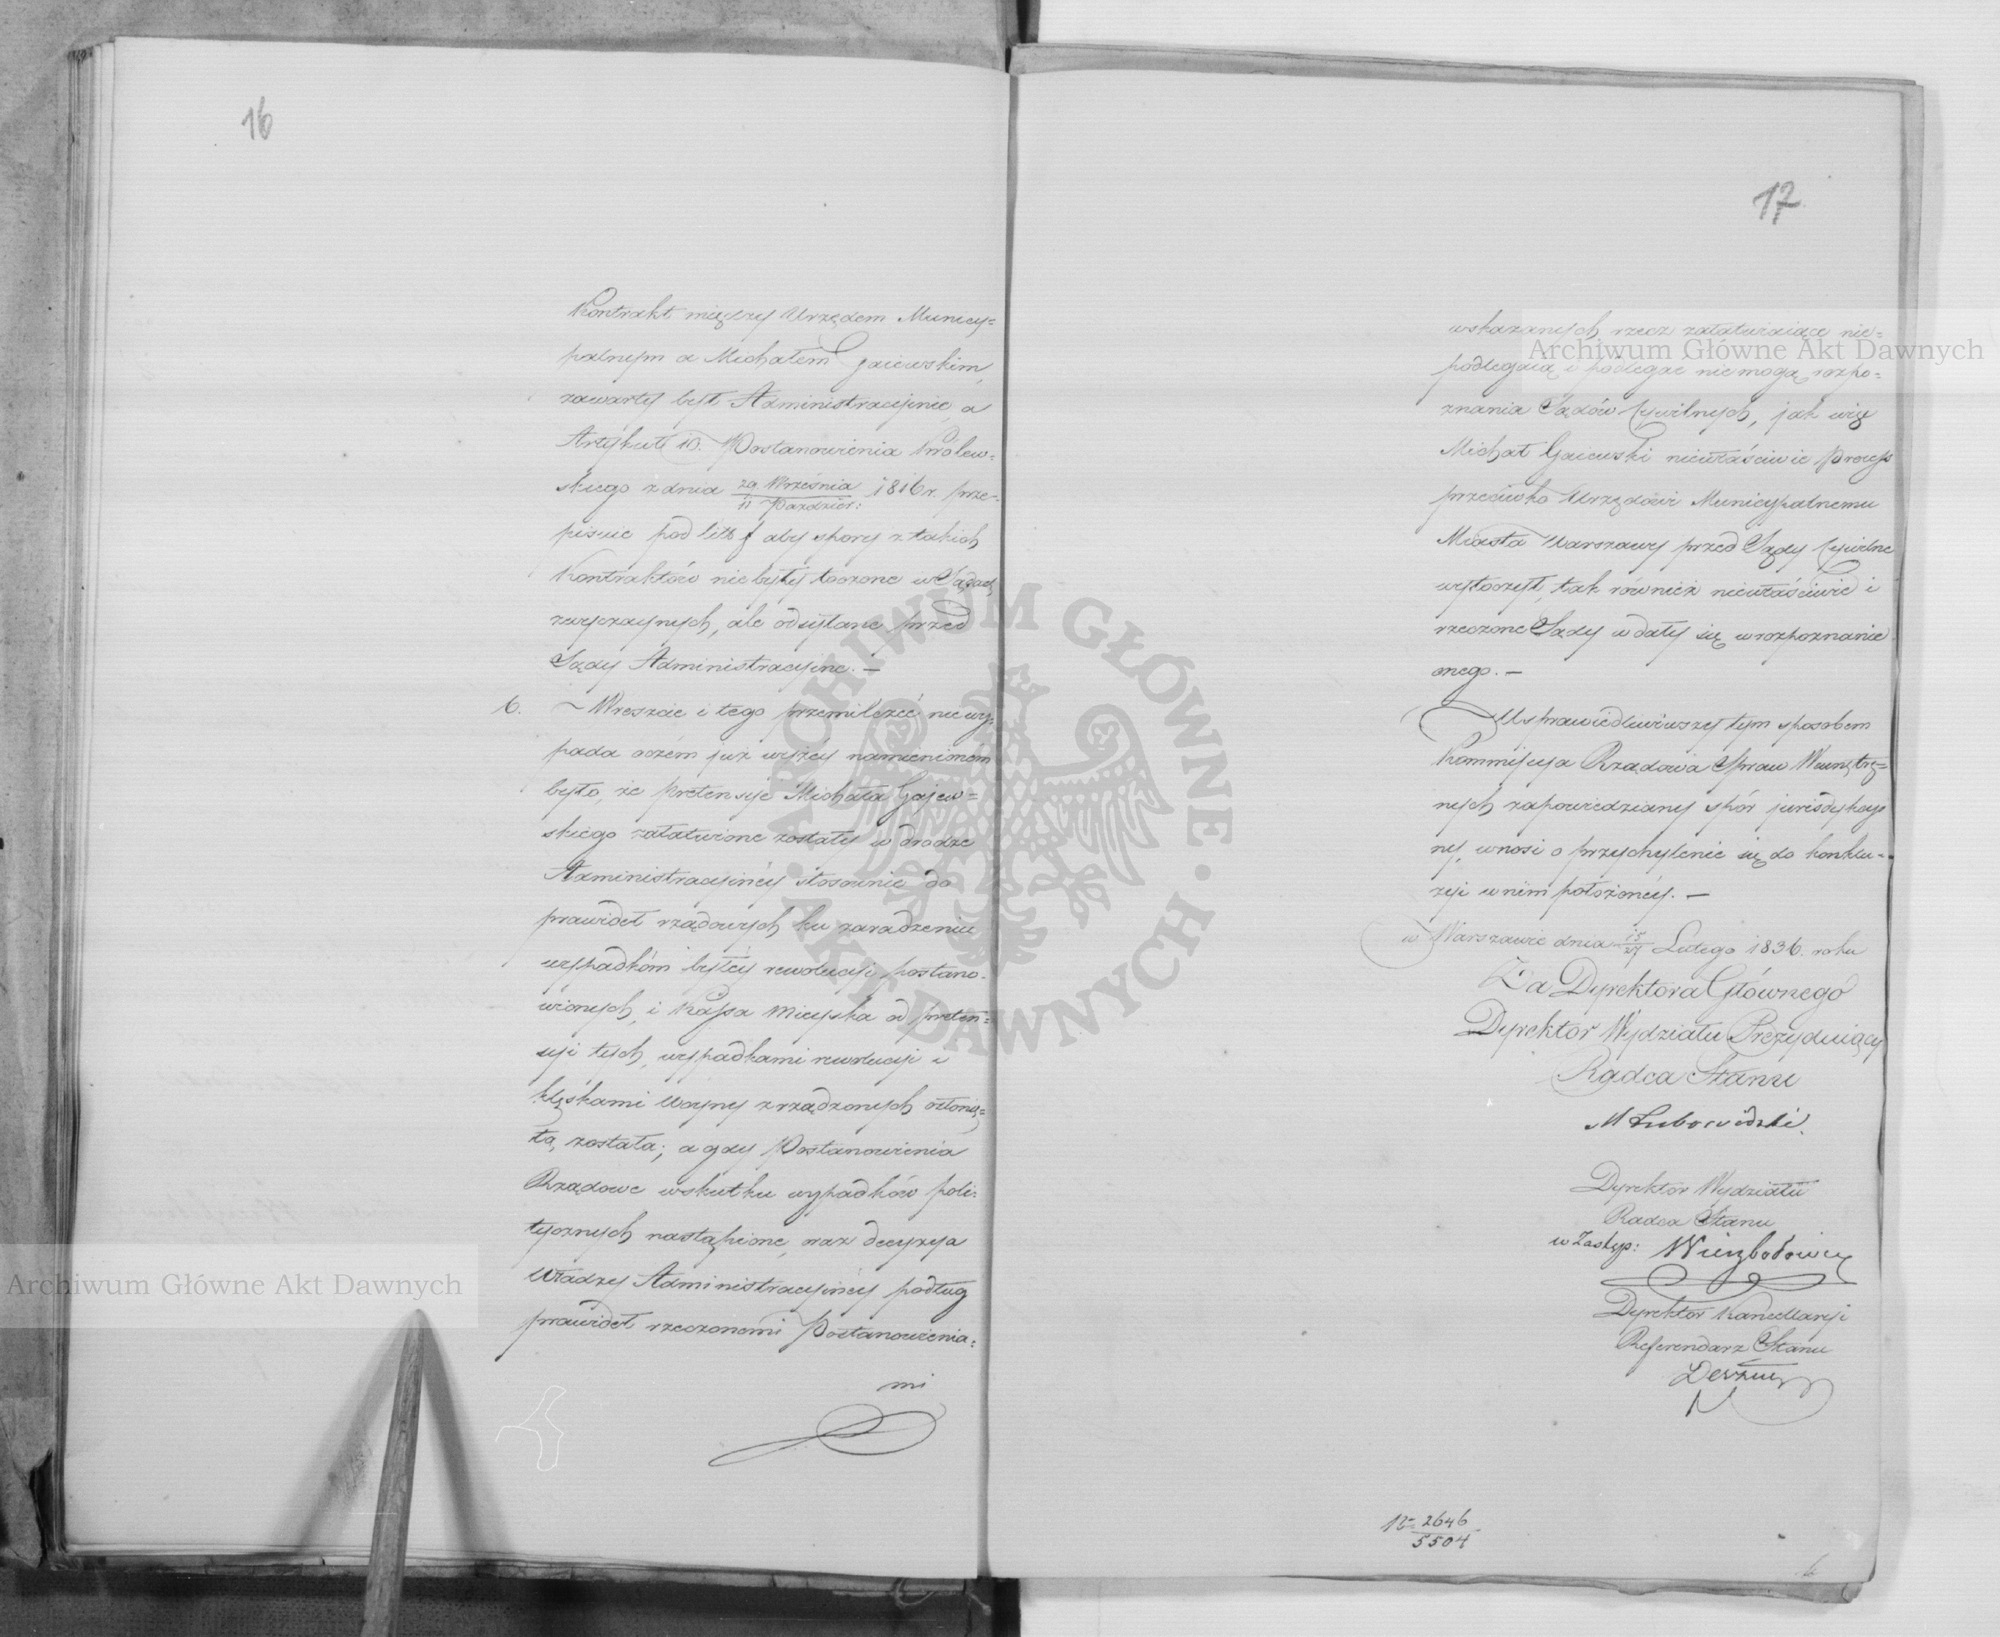 16
Kontrakt między Urzędem Municy=
palnym a Michałem Gaiewskim,
zawarty był Administracyinie, a
Artykuł 10. Postanowienia Królew=
skiego z dnia 29 Września / 11 Paździer: 1816 r. prze=
pisuie pod litt f aby spory z takich
Kontraktów nie były toczone w Sądach
zwyczaynych, ale odsyłane przed
Sądy Administracyine. —
6. – Wreszcie i tego przemilczeć nie wy=
pada oczém już wyżéy namienionem
było, że pretensye Michała Gajew=
skiego załatwione zostały w drodze
Administracyinéy stosownie do
prawideł rządowych ku zaradzeniu
wypadkóm byłéy rewolucyi postano=
wionych, i Kassa Mieyska od preten=
syi tych, wypadkami rewolucyi i
klęskami Woyny zrządzonych osłonię=
tą została; a gdy Postanowienia
Rządowe wskutku wypadków poli=
tycznych nastąpione, oraz decyzya
Władzy Administracyinéy podług
prawideł rzeczonemi Postanowienia=
mi
17
wskazanych rzecz załatwiaiące nie=
podlegaią i podlegać nie mogą rozpo=
znania Sądów Cywilnych, jak więc
Michał Gaiewski niewłaściwie Process
przeciwko Urzędowi Municypalnemu
Miasta Warszawy przed Sądy Cywilne
wytoczył, tak również niewłaściwie i
rzeczone Sądy wdały się w rozpoznanie
onego. —
Usprawiedliwiwszy tym sposobem
Kommissya Rządowa Spraw Wewnętrz=
nych zapowiedziany spór jurisdykcyy
ny, wnosi o przychylenie się do konklu=
zyi w nim położonéy. —
w Warszawie dnia 15/27 Lutego 1836. roku
Za Dyrektora Głównego
Dyrektor Wydziału Prezyduiący
Radca Stanu
M Lubowidzki.
Dyrektor Wydziału
Radca Stanu
w Zastęp:
Dyrektor Kancellaryi
Referendarz Stanu
2646
5504
Archiwum Główne Akt Dawnych
Archiwum Główne Akt Dawnych
ARCHIWUM GŁÓWNE · AKT DAWNYCH ·